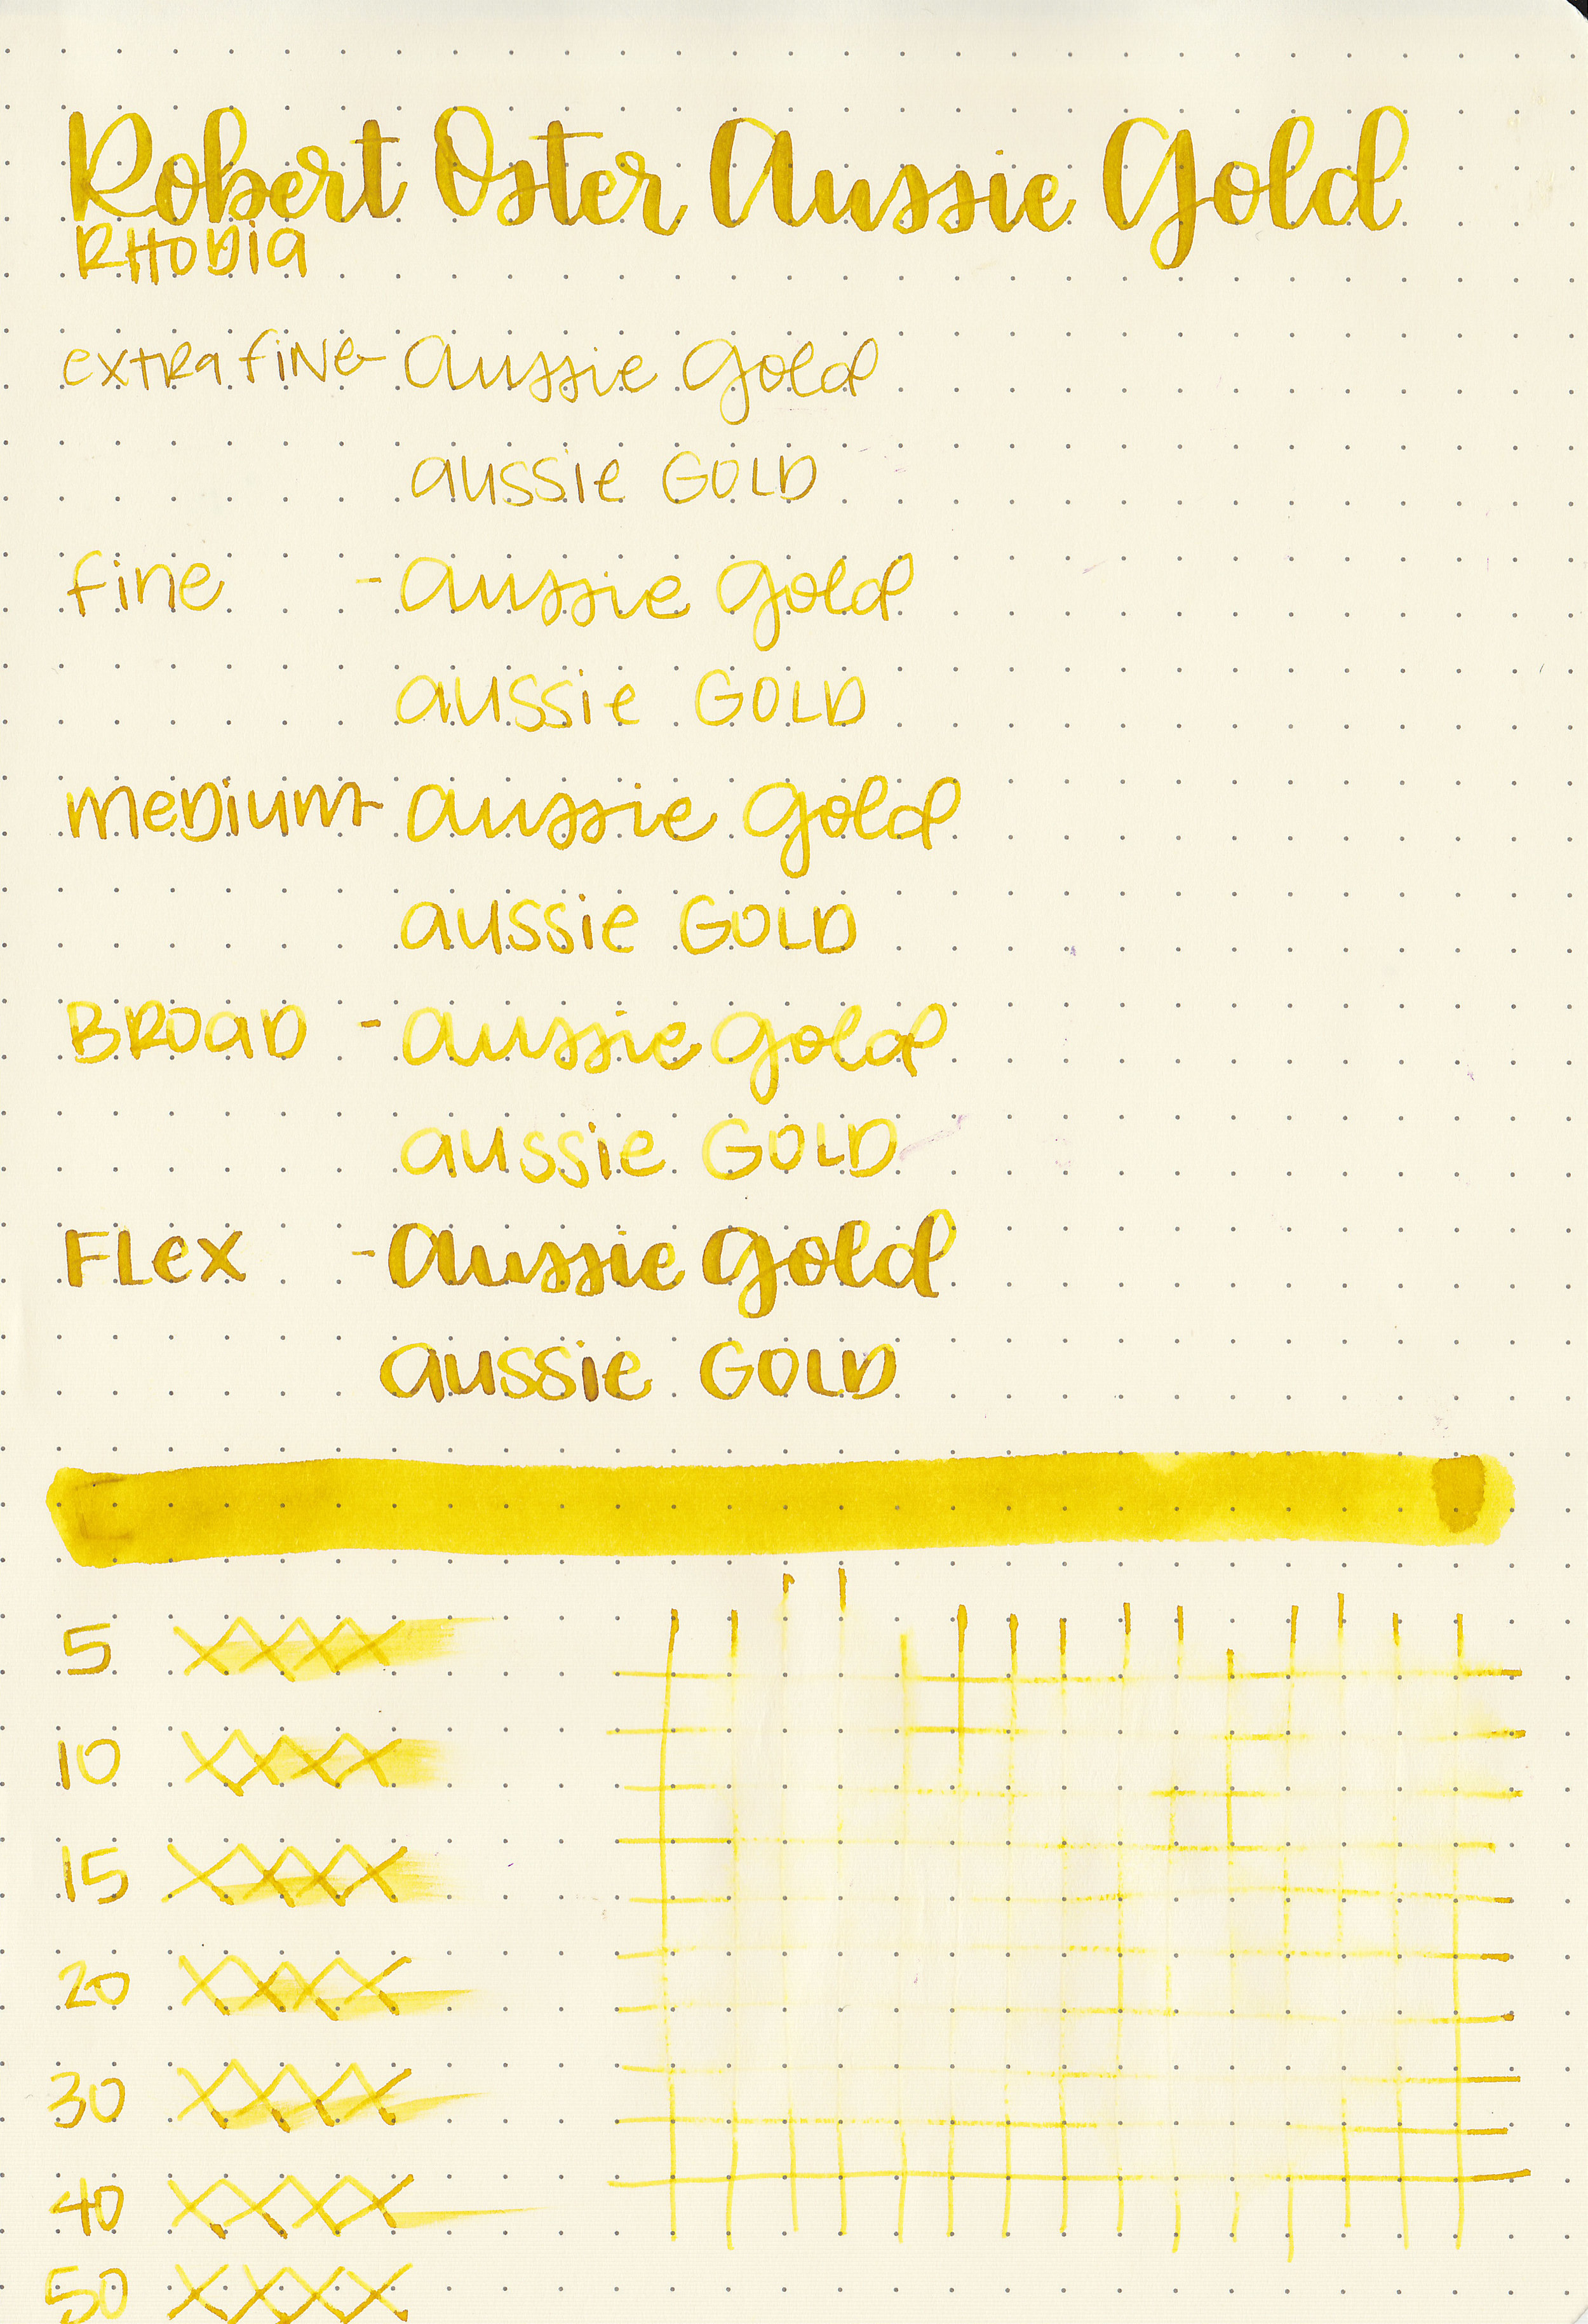 Robert Oster Aussie Gold
RHODIA
extra fine - Aussie Gold
aussie GOLD
fine - Aussie Gold
aussie GOLD
medium - Aussie Gold
aussie GOLD
BROAD - Aussie Gold
aussie GOLD
FLEX - Aussie Gold
aussie GOLD
5
10
15
20
30
40
50